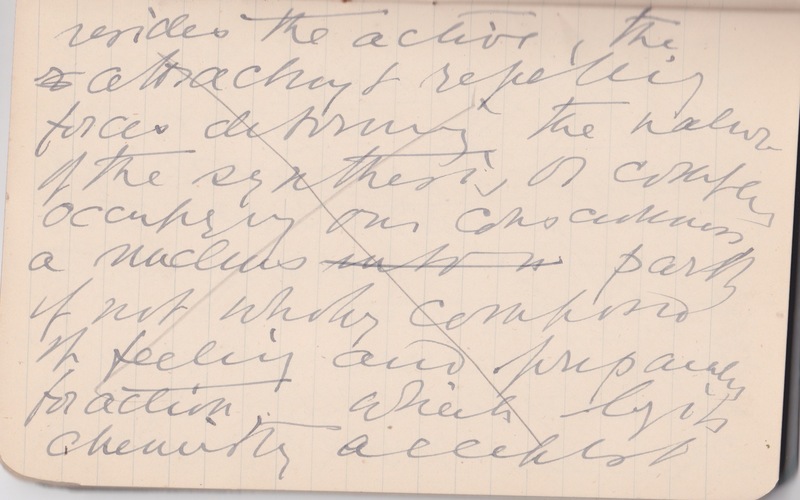 resides the active, the
attracting & repelling
forces determining the nature
of the synthesis, or complex
occupying our consciousness
a nucleus partly
if not wholly composed
of feeling and preparedness
for action, which
chemistry